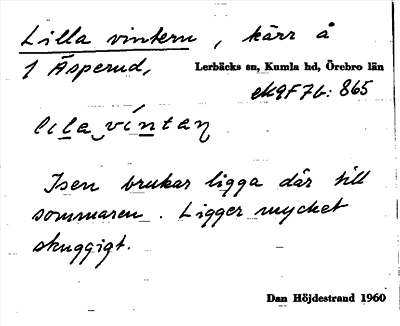 Lilla vintern, kärr å
1 Äsperud, Lerbäcks sn, Kumla hd, Örebro län
865
Isen brukar ligga där till
sommaren. Ligger mycket
skuggigt.
Dan Höjdestrand 1960